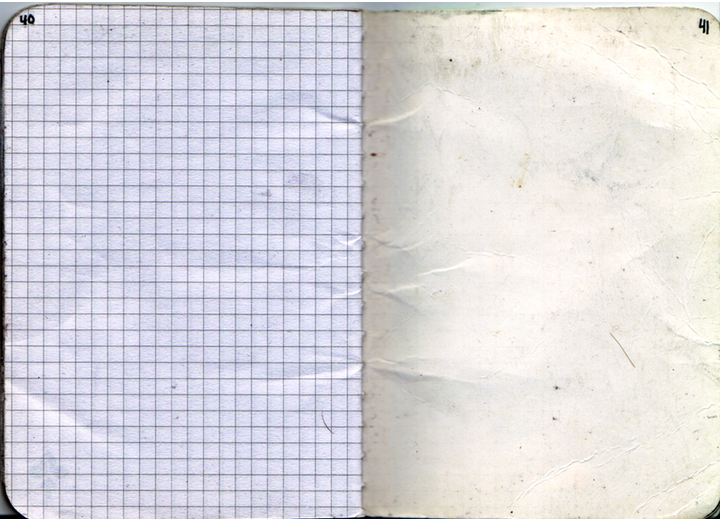 40
41